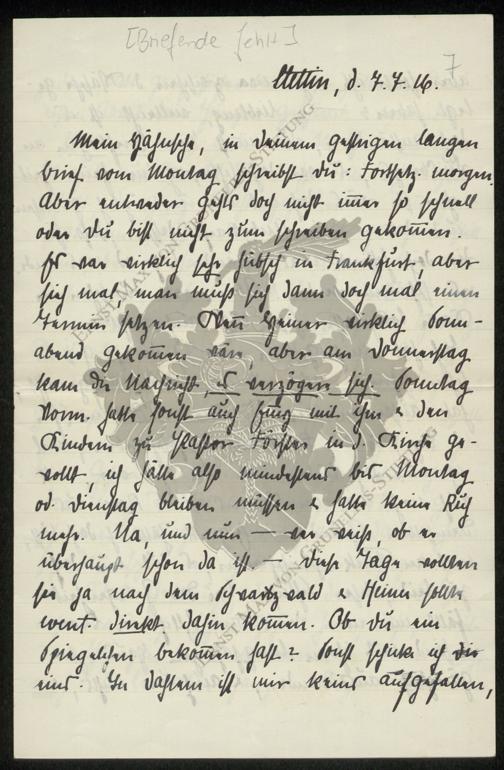 [Briefende fehlt]
7
Stettin, d. 7.7.16.
Mein Hähnsche, in deinem gestrigen langen
Brief vom Montag schreibst du: Fortsetz. morgen.
Aber entweder gehts doch nicht immer so schnell
oder du bist nicht zum schreiben gekommen.
Es war wirklich sehr hübsch in Frankfurt, aber
sieh mal, man muß sich dann doch mal einen
Termin setzen. Wenn Heiner wirklich Sonn-
abend gekommen wäre, aber am Donnerstag
kam die Nachricht, es verzögere sich. Sonntag
Vorm. hatte Ernst auch mit ihm & den
Kindern zu Pastor Förster in d. Kirche ge-
wollt, ich hätte also mindestens bis Montag
od. Dienstag bleiben müssen & hatte keine Ruh
mehr. Na, und nun — wer weiß, ob er
überhaupt schon da ist — diese Tage wollten
sie ja nach dem Schwarzwald & Heiner sollte
event. direkt dahin kommen. Ob du ein
Spiegelchen bekommen hast? Sonst schicke ich dir
eins. In Dahlem ist mir keins aufgefallen,
ERNST MAX VON GRUNELIUS-STIFTUNG
ERNST MAX VON GRUNELIUS-STIFTUNG